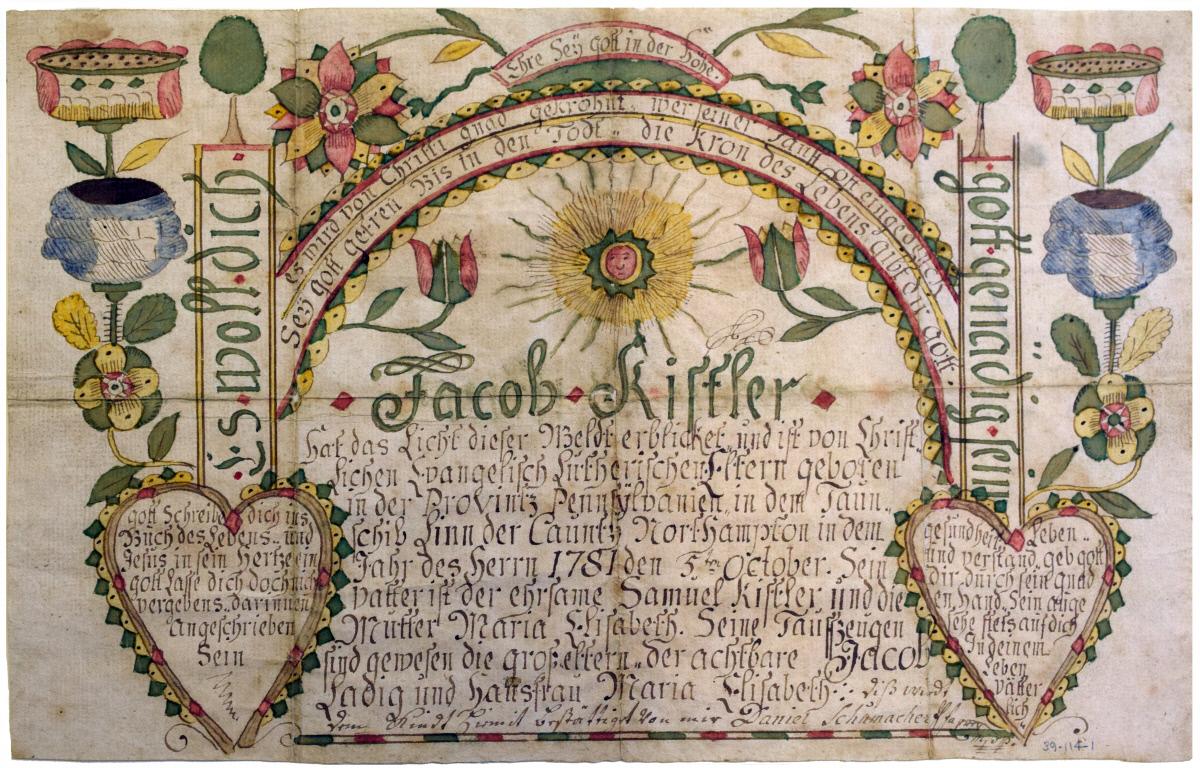 Ehre Sey Gott in der Höhe.
Es wird von Christi gnad gekröhnt, wer seiner Tauff ist eingedenck
Sey Gott getreu Bis in den Todt, die Kron des Lebens Gibt dir Gott.
Es wolle dich
Gott genädig sein
Jacob Kistler
Hat das Licht dieser Weldt erblicket und ist von Christ=
lichen Evangelisch Lutherischen Eltern geboren
in der Provintz Pennsylvanien, in dem Taun=
schib Linn der Caunty Northampton in dem
Jahr des Herrn 1781 den 5ten October. Sein
vatter ist der ehrsame Samuel Kistler und die
Mutter Maria Elisabeth. Seine Taufzeugen
sind gewesen die großeltern, der achtbare Jacob
Ladig und Hausfrau Maria Elisabeth: diß wirdt
dem Kindt hiemit bestättiget von mir Daniel Schumacher
Gott Schreibe dich ins
Buch des Lebens, und
Jesus in sein Hertze ein
gott lasse dich doch nicht
vergebens, darinnen
Angeschrieben
Sein
gesundheit, Leben,
und verstand, geb gott
Dir durch sein gnad
en Hand, Sein auge
sehe stets auf dich
In deinem
Leben
Vätter
lich
39-114-1